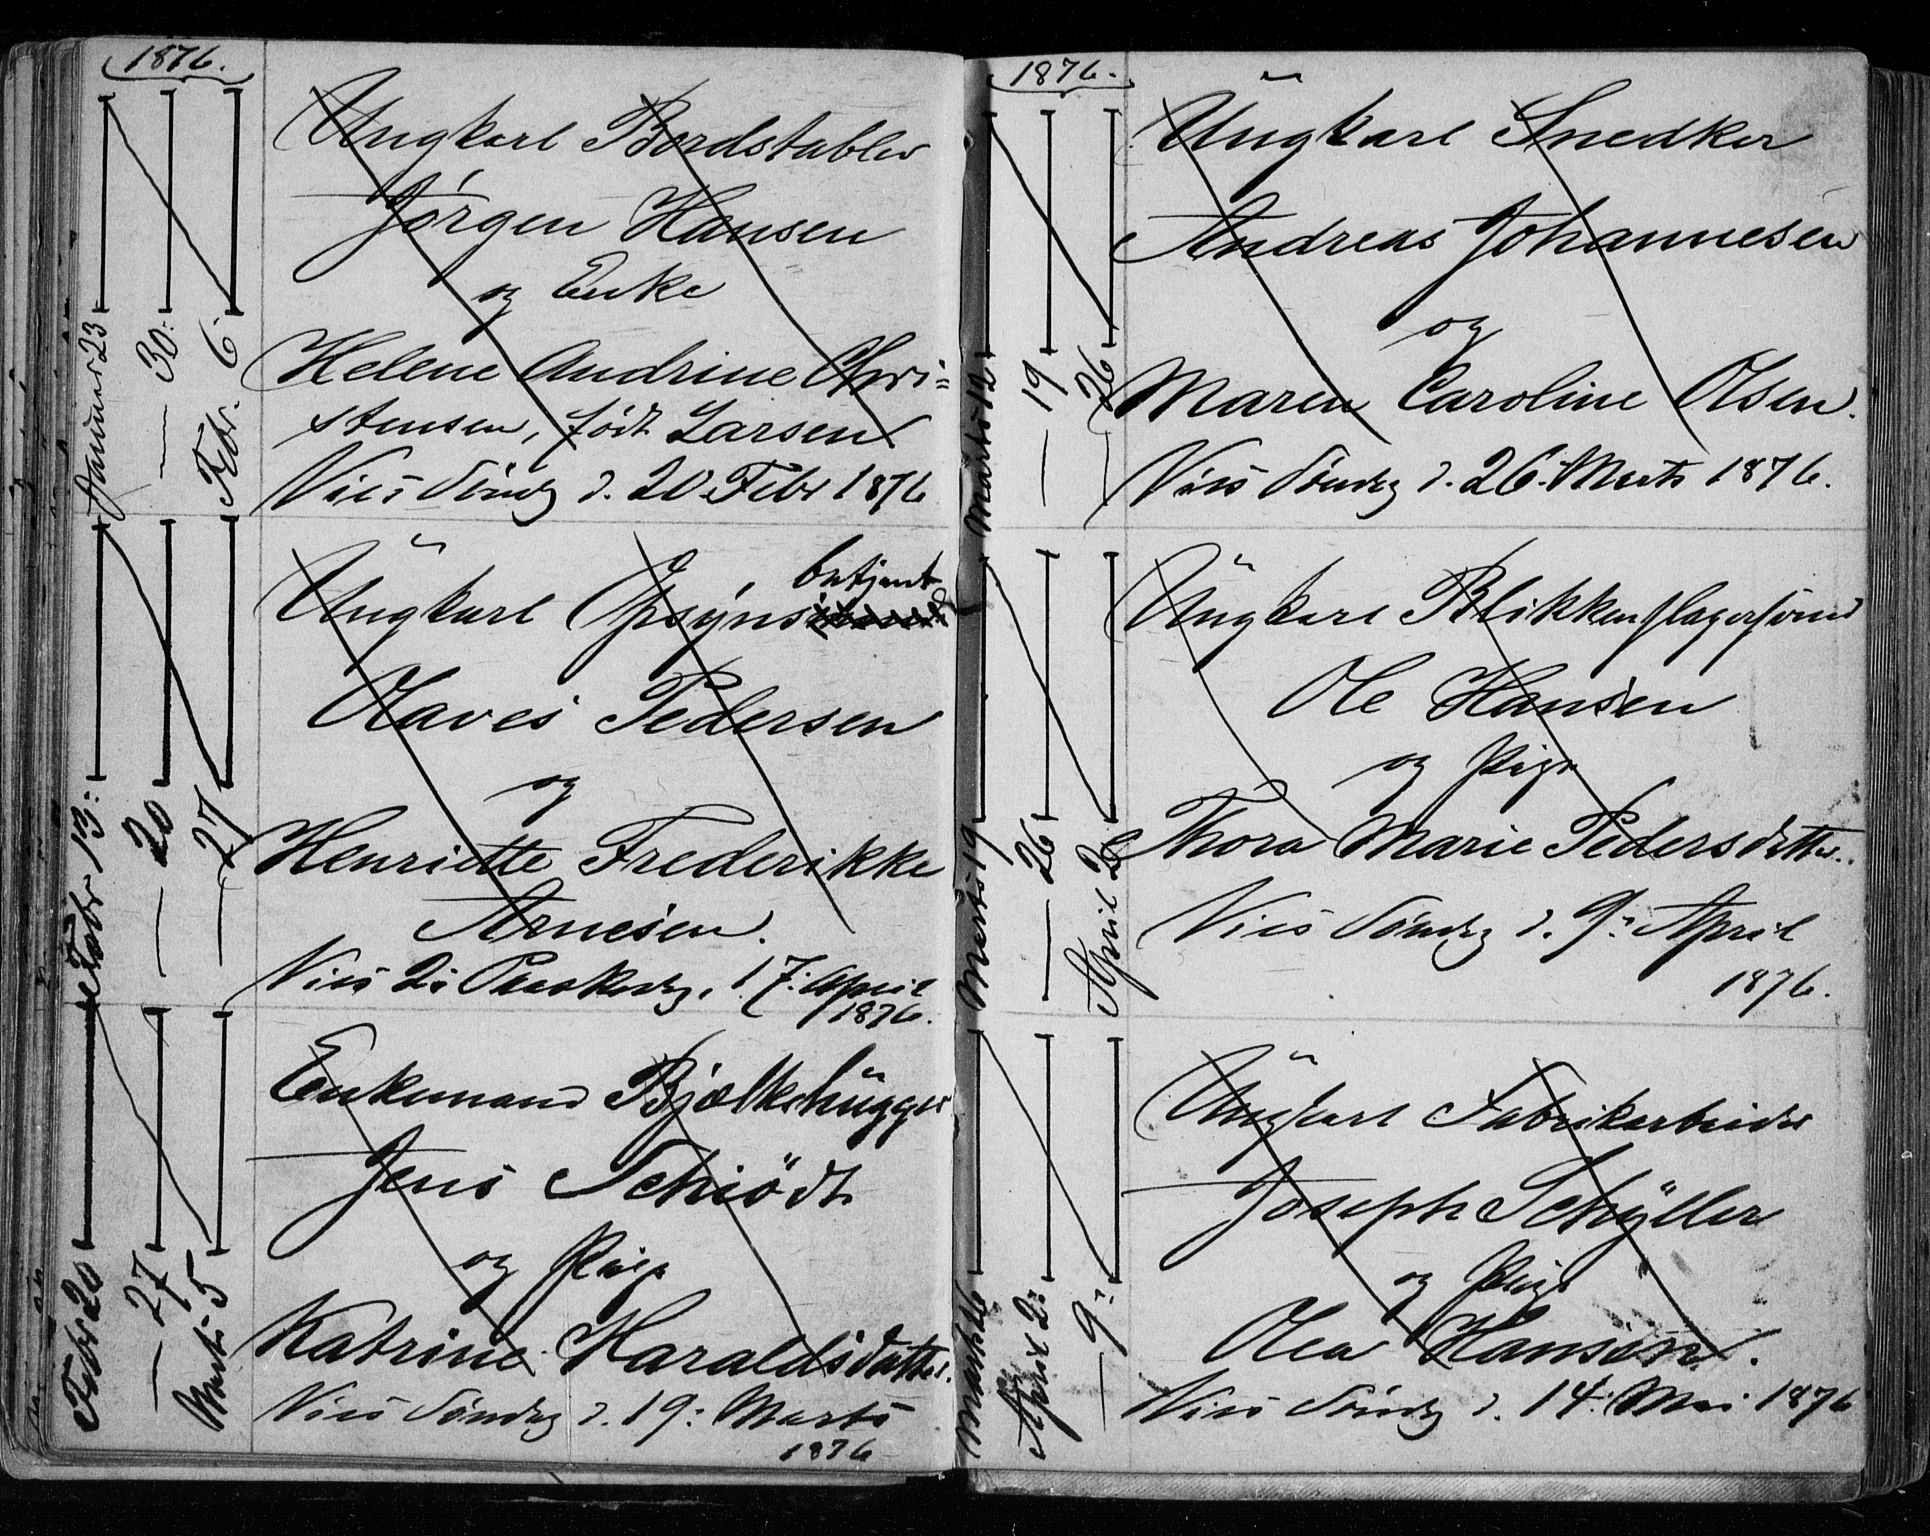 1876.
Januar 23
— 30:
Febr. 6.
Ungkarl Bordstabler
Jörgen Hansen
og Enke
Helene Andrine Chri=
stensen, födt Larsen
Vies Söndag d. 20 Febr 1876
Febr 13:
— 20
— 27
Ungkarl Opsyns betjent
Olaves Pedersen
og
Henriette Frederikke
Arnesen.
Vies 2: Paaskedag, 17. April
1876.
Febr 20
— 27
Marts 5
Enkemand Bjælkehugger
Jens Schiödt
og Pige
Katrine Haraldsdatter.
Vies Söndag d. 19: Marts
1876
1876.
Marts 12
— 19
— 26
Ungkarl Snedker
Andreas Johannesen
og
Maren Caroline Olsen.
Vies Söndag d. 26. Marts 1876.
Marts 19
— 26
April 2
Ungkarl Blikkenslagersvend
Ole Hansen
og Pige
Thora Marie Pedersdatter.
Vies Söndag d. 9: April
1876.
April 2:
— 9:
Ungkarl Fabrikarbeider
Joseph Schÿller
og Pige
Olea Hansen.
Vies Söndag d. 14. Mai 1876